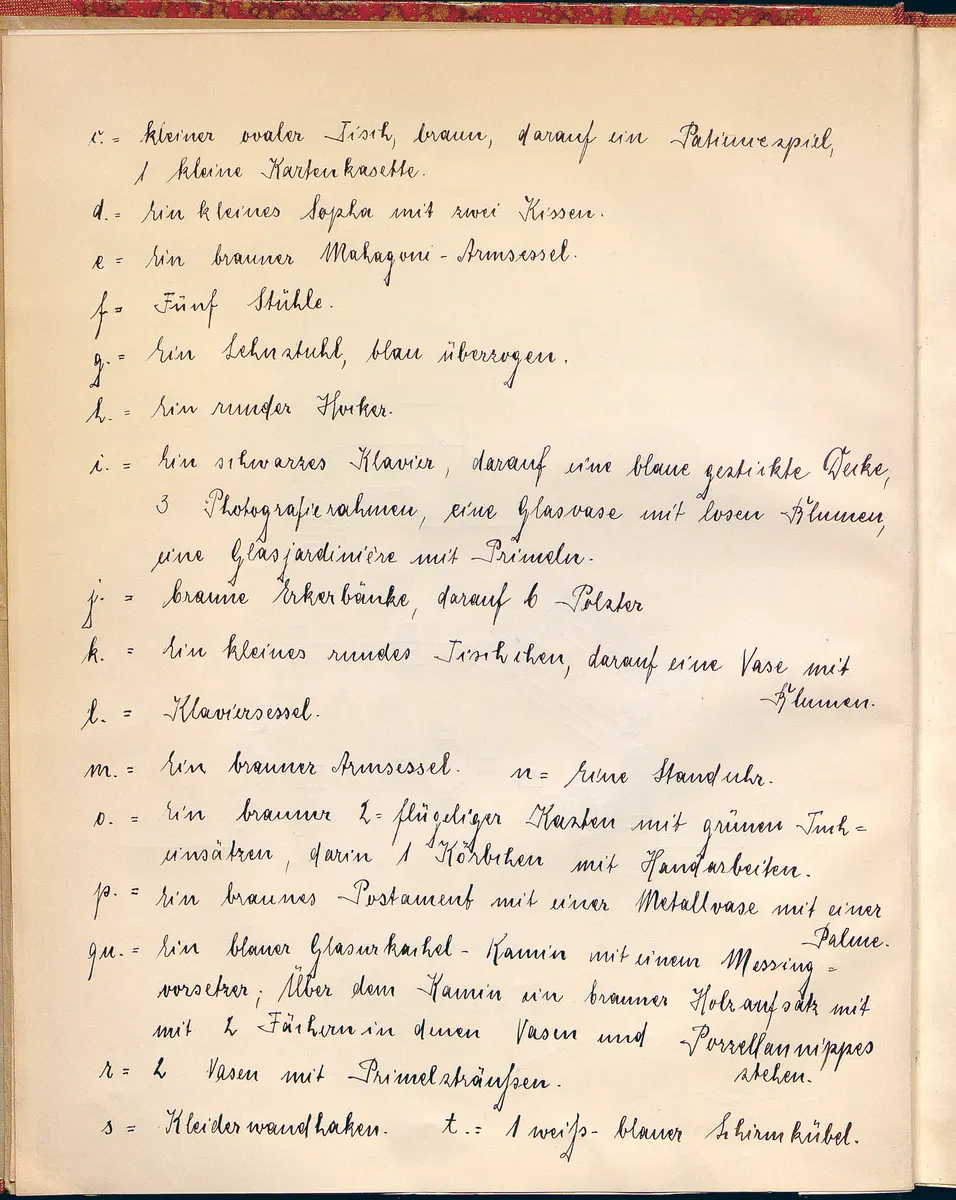 c. = kleiner ovaler Tisch, braun, darauf ein Patiencespiel,
1 kleine Kartenkasette.
d. = Ein kleines Sopha mit zwei Kissen.
e = Ein brauner Mahagoni - Armsessel.
f = Fünf Stühle.
g. = Ein Lehnstuhl, blau überzogen.
h. = Ein runder Hocker.
i. = Ein schwarzes Klavier, darauf eine blaue gestickte Decke,
3 Photografierahmen, eine Glasvase mit losen Blumen,
eine Glasjardiniére mit Primeln.
j. = braune Erkerbänke, darauf 6 Polster
k. = Ein kleines rundes Tischchen, darauf eine Vase mit
Blumen.
l. = Klaviersessel.
m. = Ein brauner Armsessel. n = Eine Standuhr.
o. = Ein brauner 2=flügeliger Kasten mit grünen Tuch=
einsätzen, darin 1 Körbchen mit Handarbeiten.
p. = Ein braunes Postament mit einer Metallvase mit einer
Palme.
qu. = Ein blauer Glasurkachel - Kamin mit einem Messing=
vorsetzer; Über dem Kamin ein brauner Holzaufsatz mit
mit 2 Fächern in denen Vasen und Porzellannippes
stehen.
r = 2 Vasen mit Primelsträußen.
s = Kleiderwandhaken. t. = 1 weiß-blauer Schirmkübel.